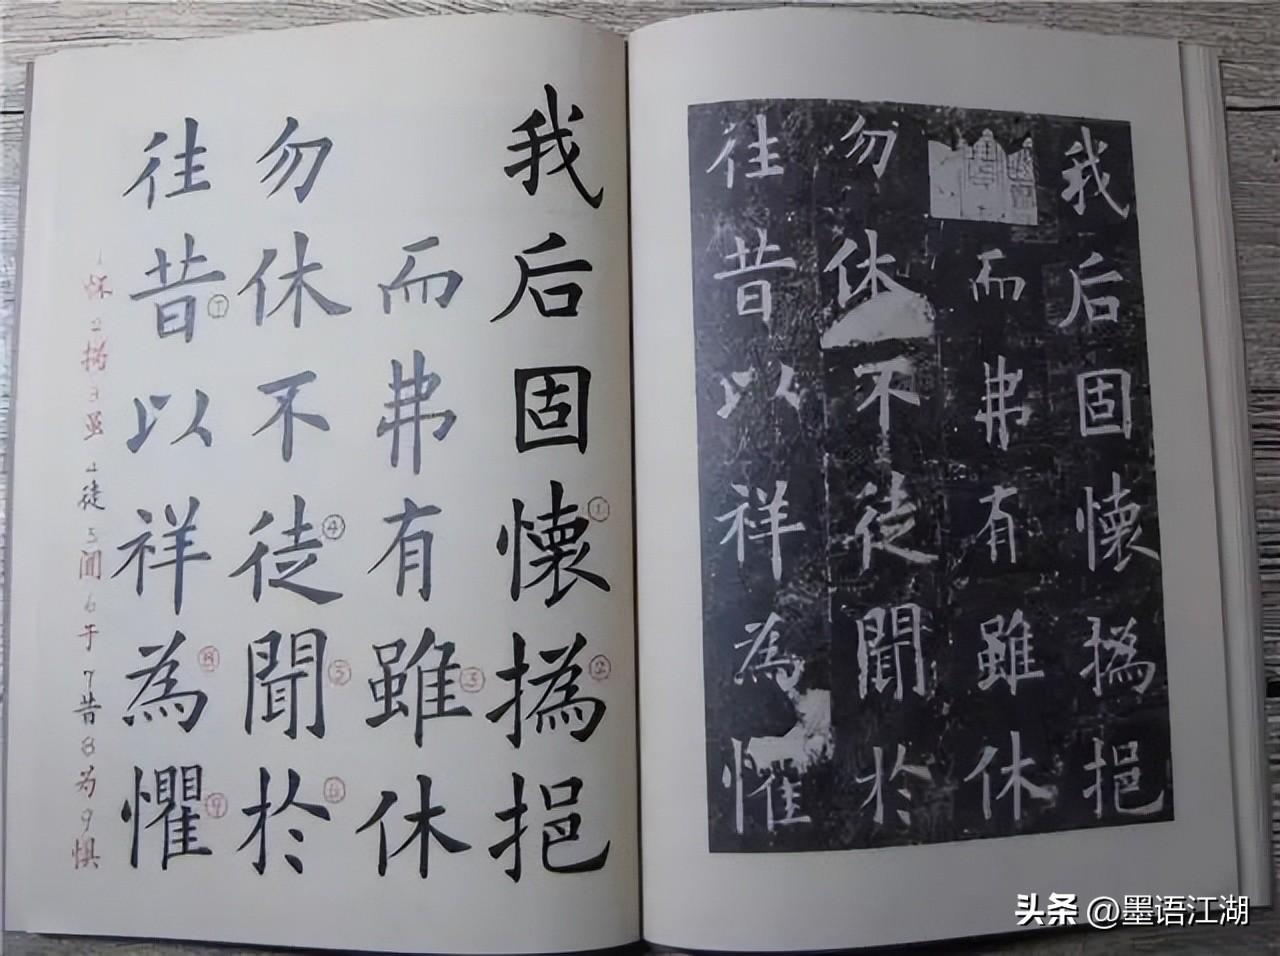 我后固懷①撝②挹
而弗有雖③休
勿休不徒④聞⑤於⑥
徃昔⑦以祥為⑧懼⑨
1怀2撝3虽4徒5闻6于7昔8为9惧
我后固懷撝挹
而弗有雖休
勿休不徒聞於
徃昔以祥為懼
头条 @墨语江湖